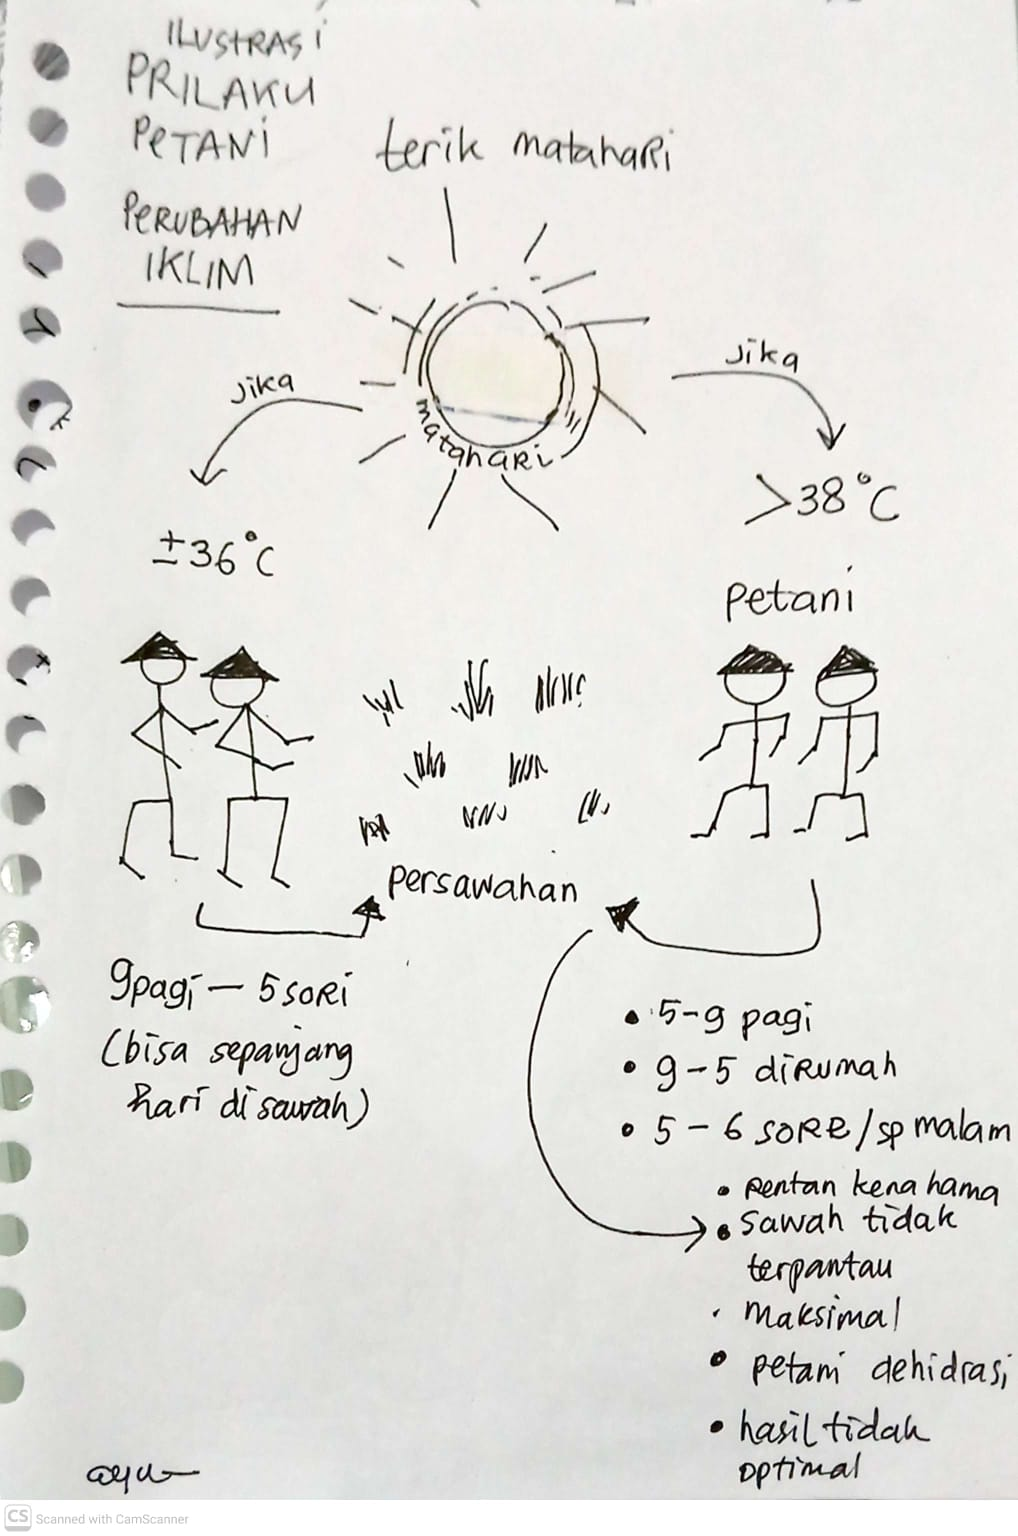 ILUSTRASI
PRILAKU
PETANI
PERUBAHAN
IKLIM
terik matahari
jika
jika
matahari
±36°C
>38°C
petani
persawahan
9pagi - 5 sori
(bisa sepanjang
hari disawah)
• 5-9 pagi
• 9-5 dirumah
• 5-6 sore/sp malam
• rentan kena hama
• sawah tidak
terpantau
• maksimal
• petani dehidrasi
• hasil tidak
optimal
CS Scanned with CamScanner